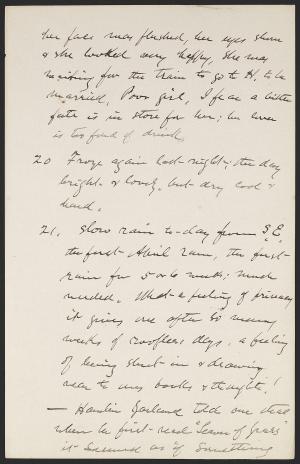 her face was flushed, her eyes shone
& she looked very happy, she was
waiting for the train to go to H. to be
married. Poor girl, I fear a bitter
fate is in store for her; her lover
is too fond of drink
20 Froze again last night; the day
bright & lovely, but dry cool &
hard.
21. Slow rain to-day from S.E.
the first April rain, the first
rain for 5 or 6 weeks; much
needed. What a feeling of privacy
it gives one after so many
weeks of roofless days, a feeling
of being shut in & drawing
near to ones books & thoughts!
— Hamlin Garland told me that
when he first read "Leaves of Grass"
it seemed as if something